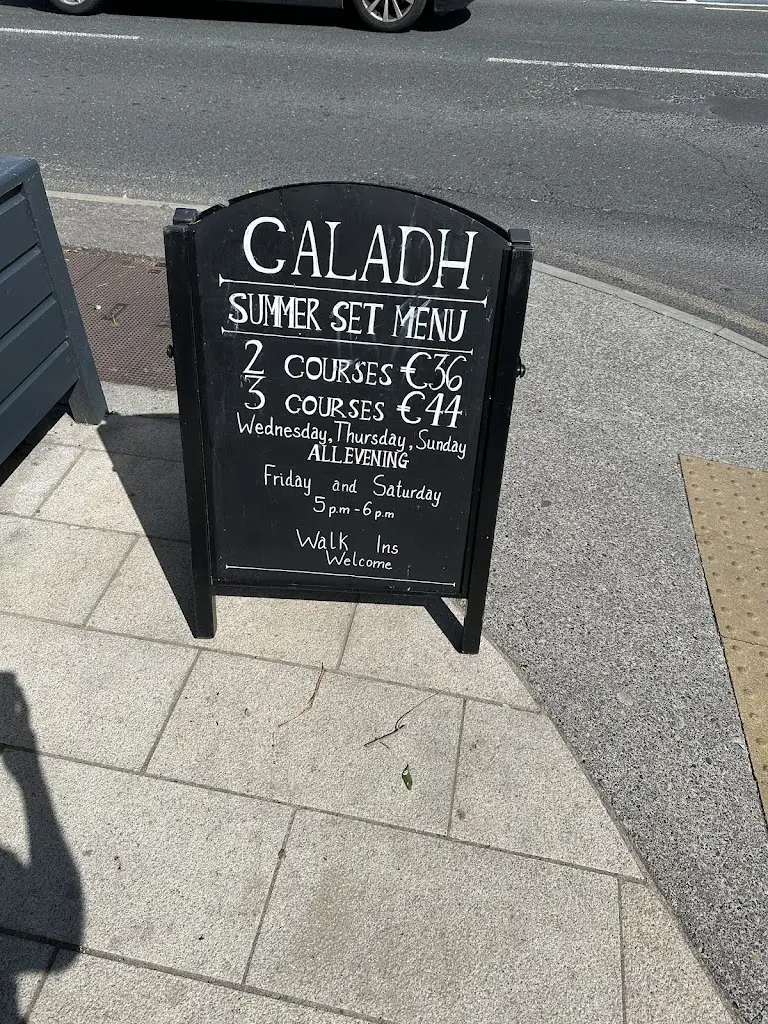 CALADH
SUMMER SET MENU
2 COURSES €36
3 COURSES €44
Wednesday, Thursday, Sunday
ALL EVENING
Friday and Saturday
5 p.m - 6 p.m
Walk Ins
Welcome